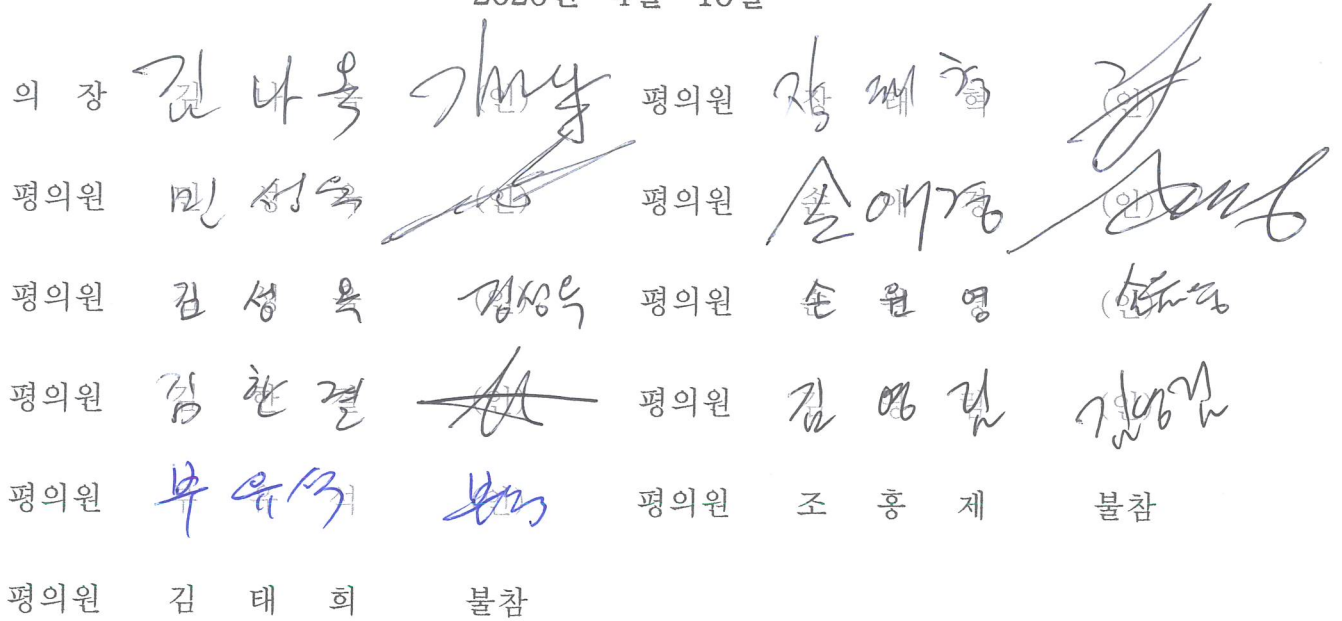 의 장 김 나 옥 (인) 평의원 장 재 혁 (인)
평의원 민 성 욱 (인) 평의원 손 애 경 (인)
평의원 김 성 욱 김성욱 평의원 손 원 영 (인)
평의원 김 한 결 (인) 평의원 김 영 림 김영림
평의원 부 유 석 (인) 평의원 조 홍 제 불참
평의원 김 태 희 불참